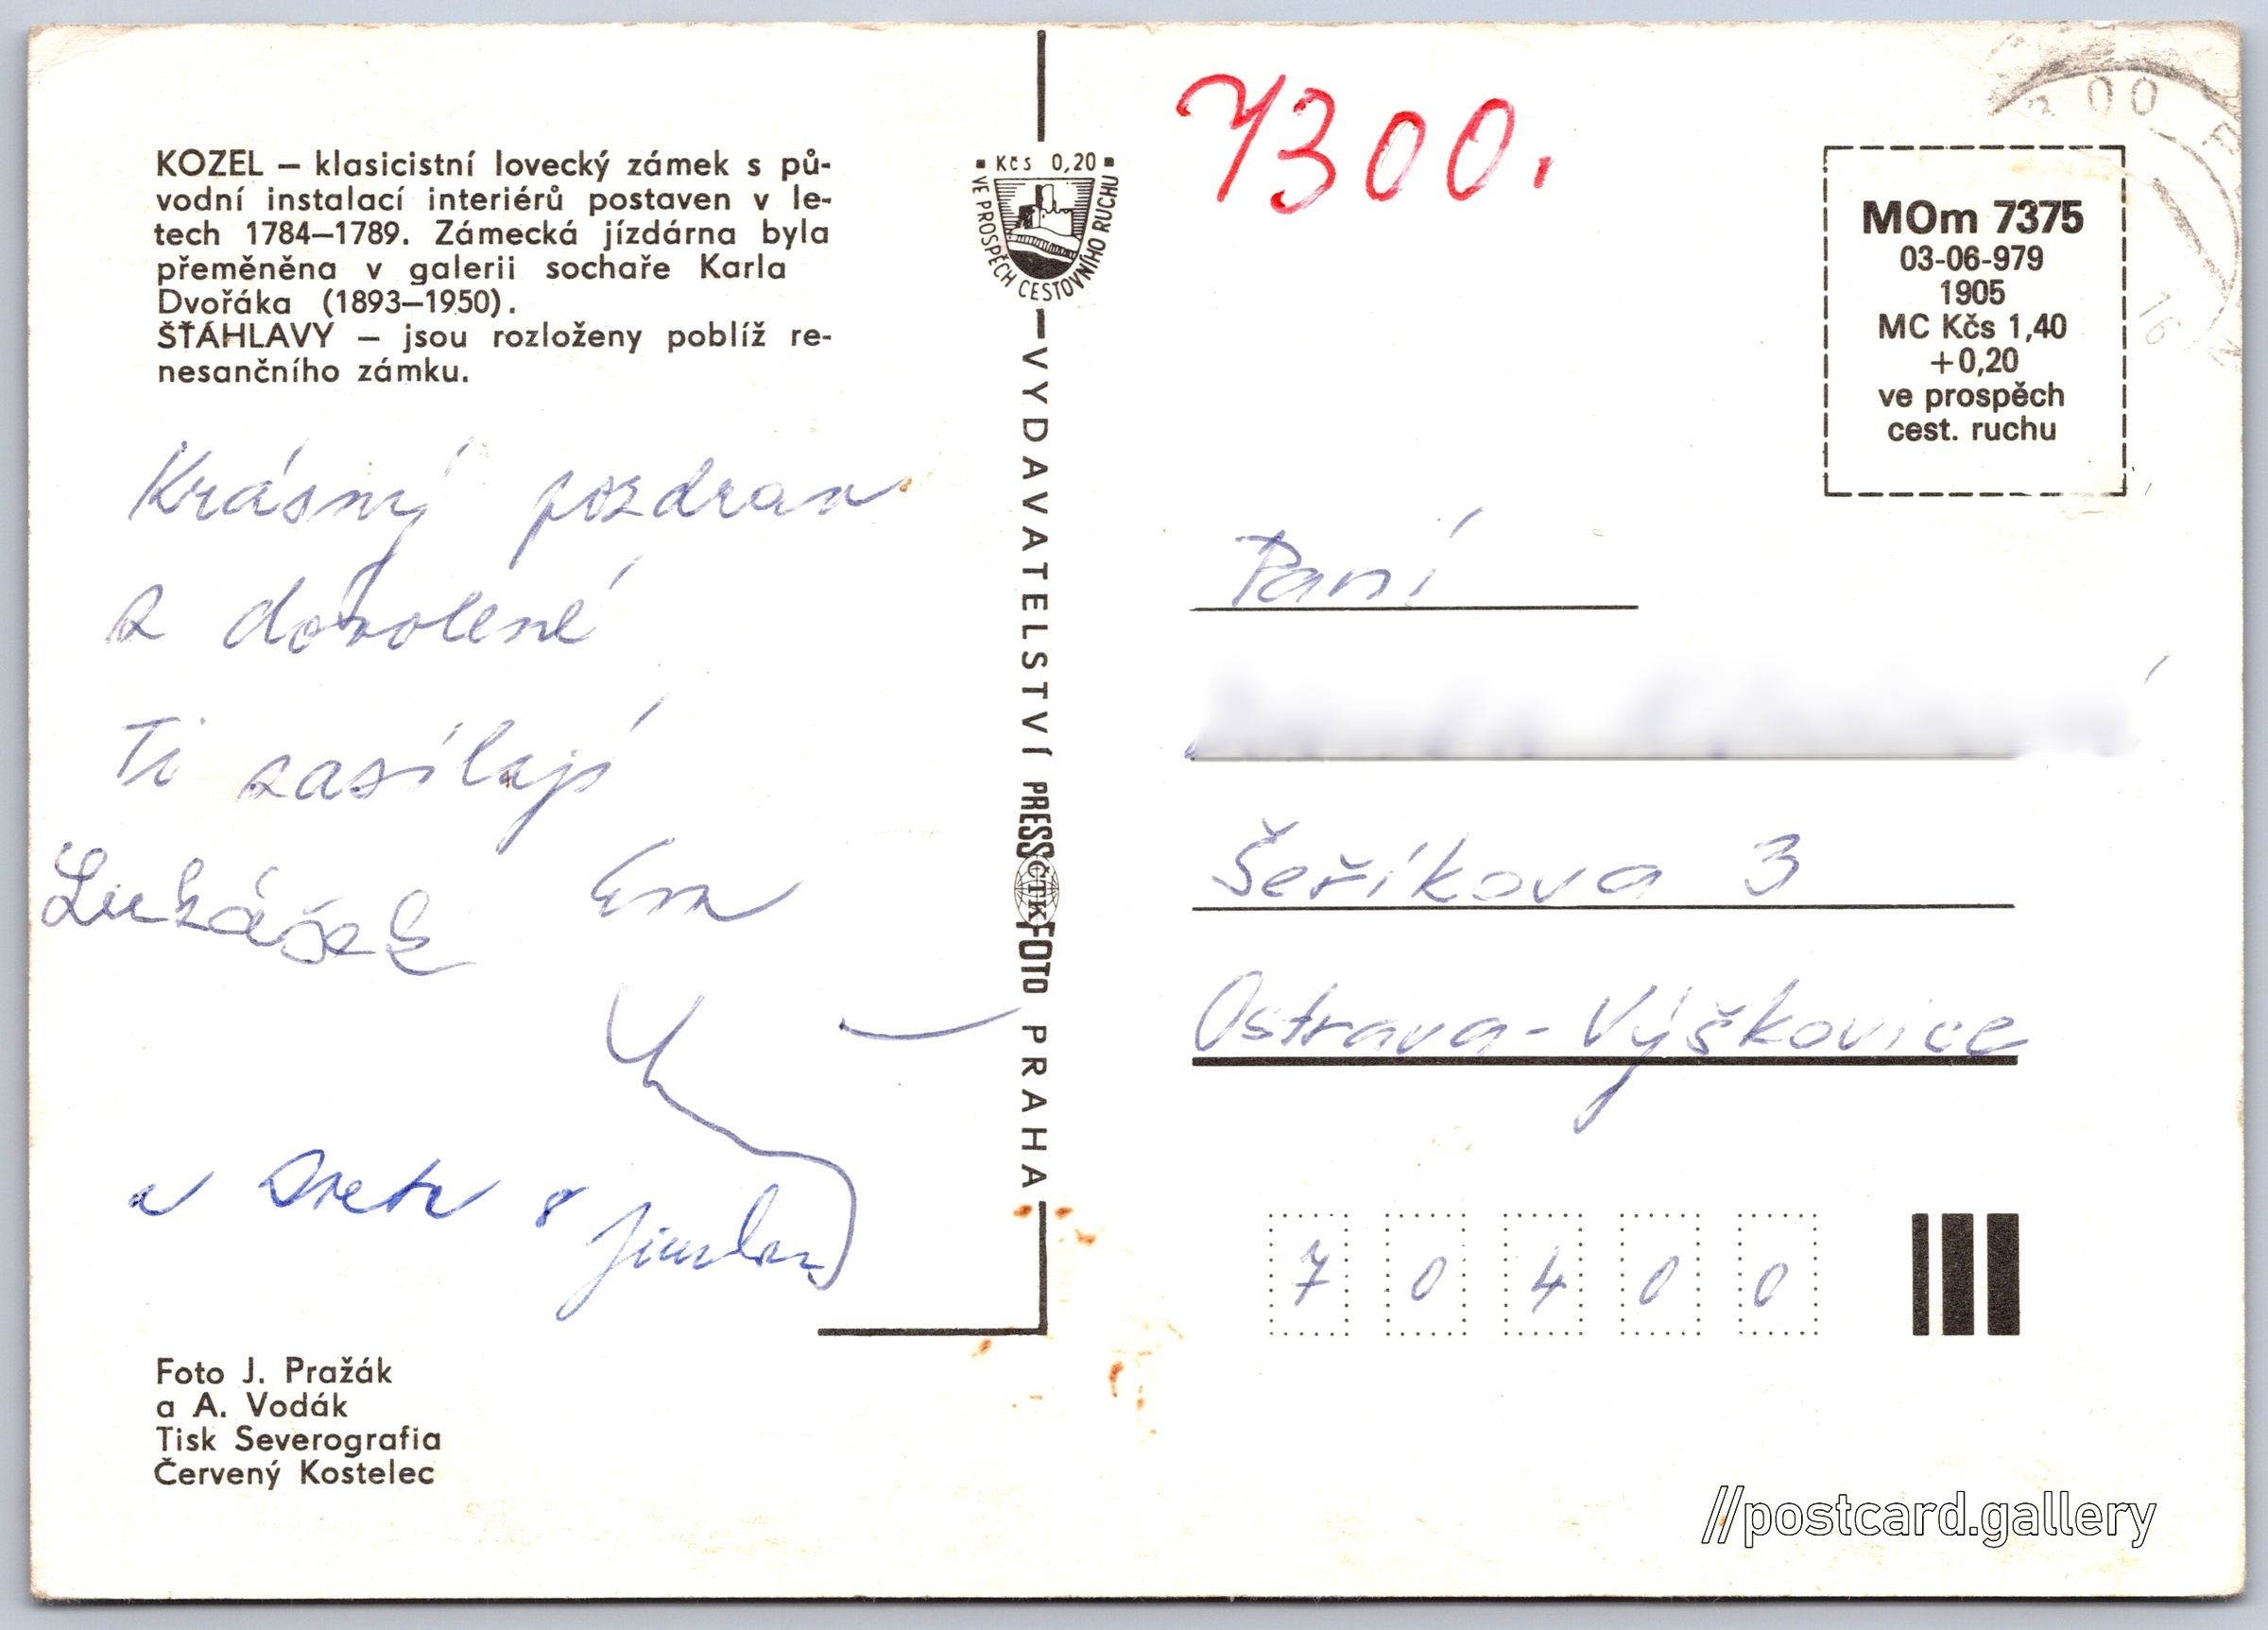 KOZEL – klasicistní lovecký zámek s pů-
vodní instalací interiérů postaven v le-
tech 1784–1789. Zámecká jízdárna byla
přeměněna v galerii sochaře Karla
Dvořáka (1893–1950).
ŠŤÁHLAVY – jsou rozloženy poblíž re-
nesančního zámku.
Krásný pozdrav
z dovolené
Ti zasílají
Lukášek
a
Foto J. Pražák
a A. Vodák
Tisk Severografia
Červený Kostelec
Kčs 0,20
VE PROSPĚCH CESTOVNÍHO RUCHU
VYDAVATELSTVÍ PRESSFOTO PRAHA
ČTK
7300.
MOm 7375
03-06-979
1905
MC Kčs 1,40
+0,20
ve prospěch
cest. ruchu
00
16
Paní
Šeříkova 3
Ostrava-Výškovice
7 0 4 0 0
//postcard.gallery